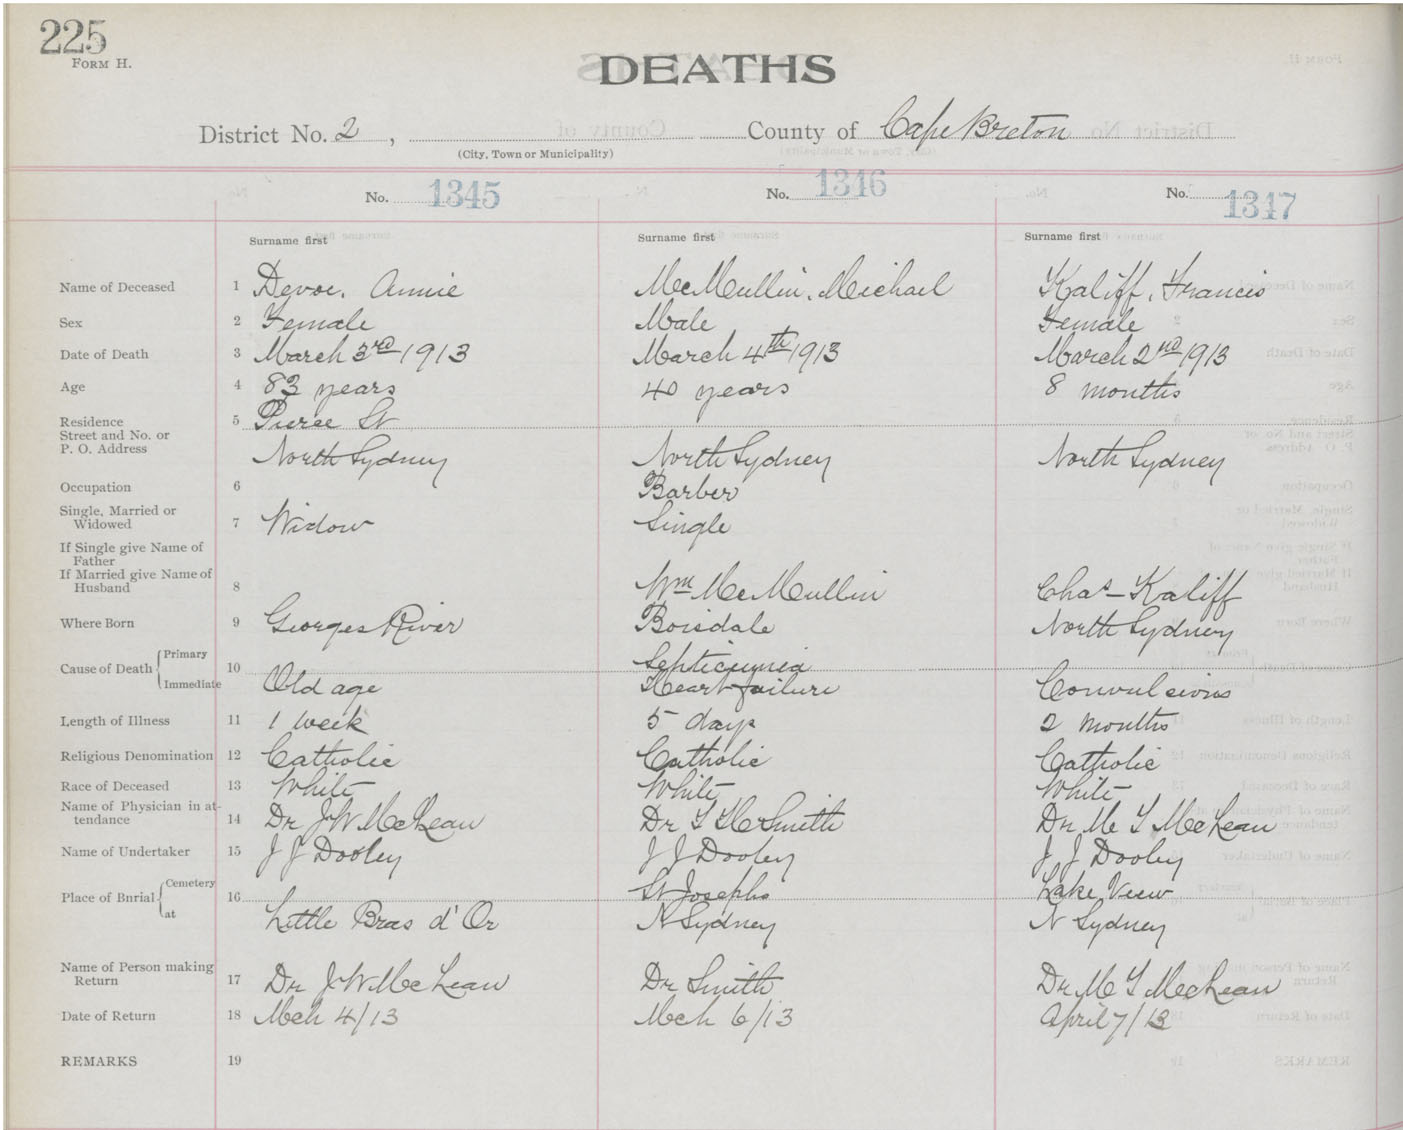 225
FORM H.
DEATHS
District No. 2, County of Cape Breton
(City, Town or Municipality)
No. 1345 No. 1346 No. 1347
Surname first Surname first Surname first
Name of Deceased 1 Devoe, Annie McMullin, Michael Kaliff, Francis
Sex 2 Female Male Female
Date of Death 3 March 3rd 1913 March 4th 1913 March 2nd 1913
Age 4 83 years 40 years 8 months
Residence 5 Pierce St
Street and No. or
P. O. Address North Sydney North Sydney North Sydney
Occupation 6 Barber
Single, Married or
Widowed 7 Widow Single
If Single give Name of
Father
If Married give Name of
Husband 8 Wm McMullin Chas Kaliff
Where Born 9 Georges River Boisdale North Sydney
Cause of Death Primary 10 Septicumia
Immediate Old age Heart failure Convulsions
Length of Illness 11 1 week 5 days 2 months
Religious Denomination 12 Catholic Catholic Catholic
Race of Deceased 13 White White White
Name of Physician in at-
tendance 14 Dr J W McLean Dr Smith Dr M T McLean
Name of Undertaker 15 J J Dooley J J Dooley J J Dooley
Place of Burial Cemetery 16 St Josephs Lake View
at Little Bras d'Or N Sydney N Sydney
Name of Person making
Return 17 Dr J W McLean Dr Smith Dr M T McLean
Date of Return 18 Mch 4/13 Mch 6/13 April 7/13
REMARKS 19